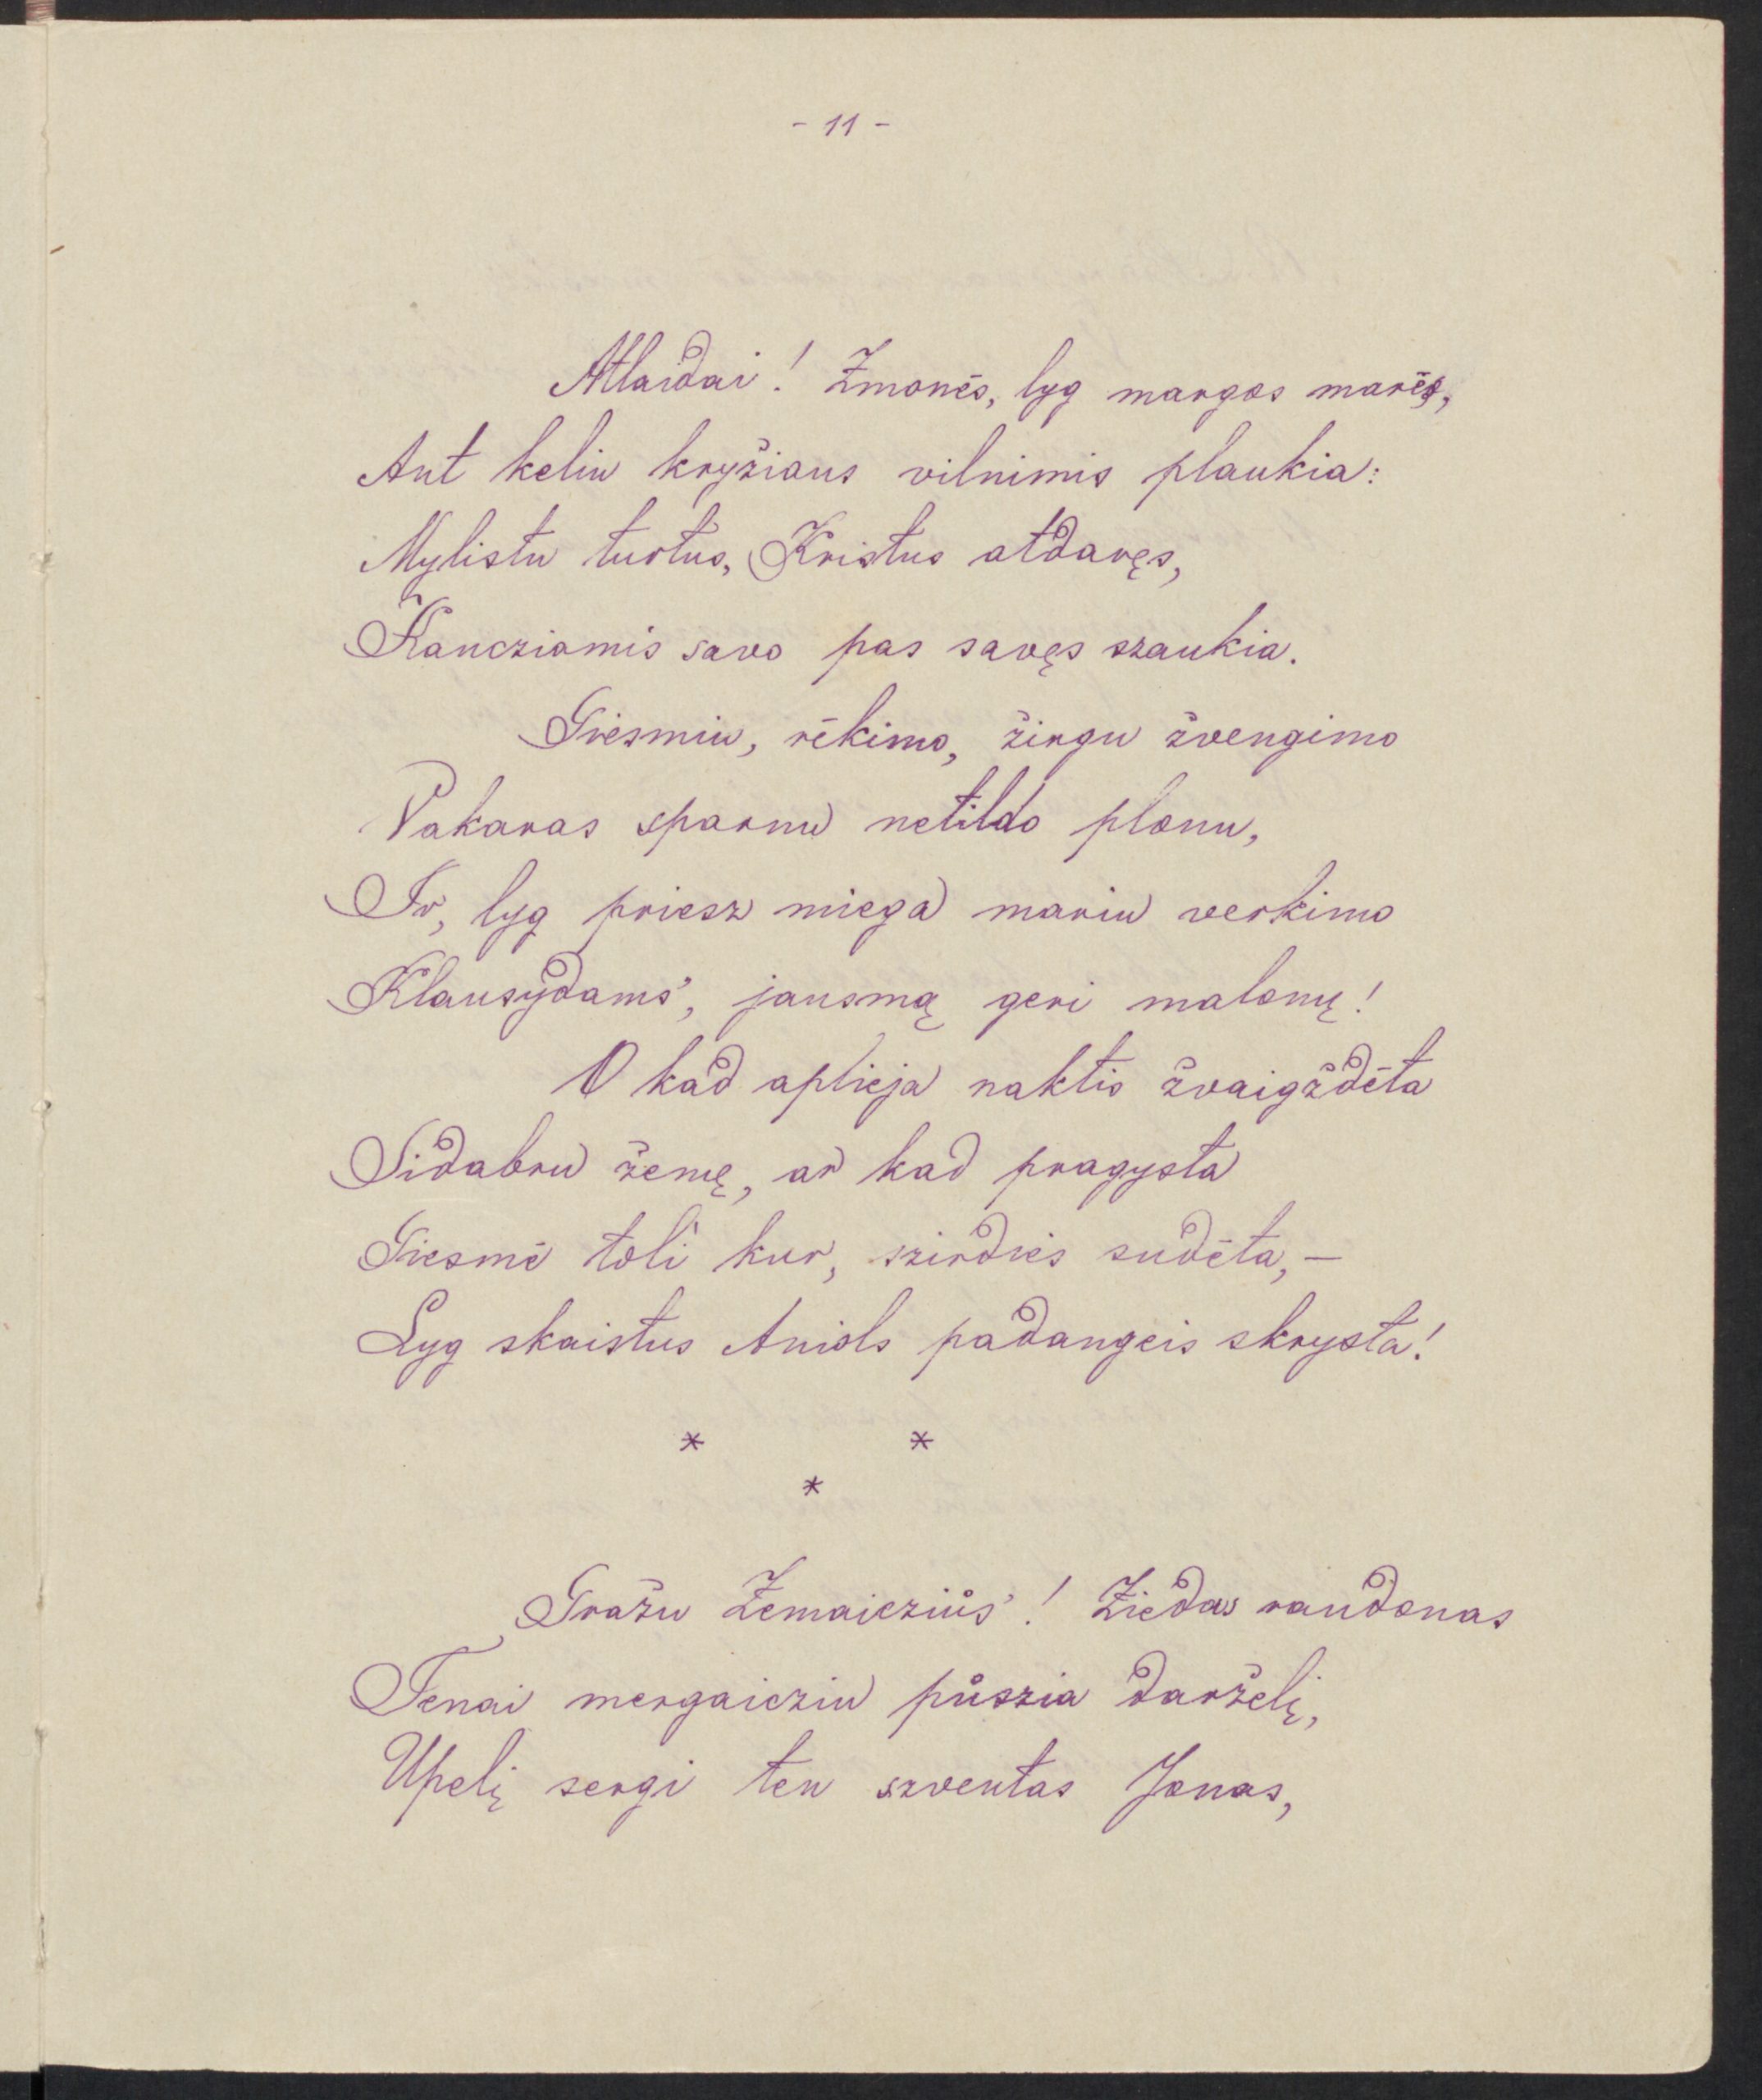 - 11 -
Atlaidai! Žmonės, lyg margos marės,
Ant keliu kryžiaus vilnimis plaukia:
Mylistu turtus, Kristus atdaręs,
Kancziomis savo pas savęs szaukia.
Giesmiu, rėkimo, žirgu žvengimo
Vakaras sparnu netildo plonu,
Ir, lyg priesz miega mariu verkimo
Klausydams', jausmą geri malonų!
O kad aplieja naktis žvaigždėta
Sidabru žemę, ar kad pragysta
Giesmė toli kur, szirdies sudėta, —
Lyg skaistus Aniols padangeis skrysta!
* *
*
Gražu Žemaicziůs'! Žiedas raudonas
Tenai mergaicziu půszia darželį,
Upelį sergi ten szventas Jonas,